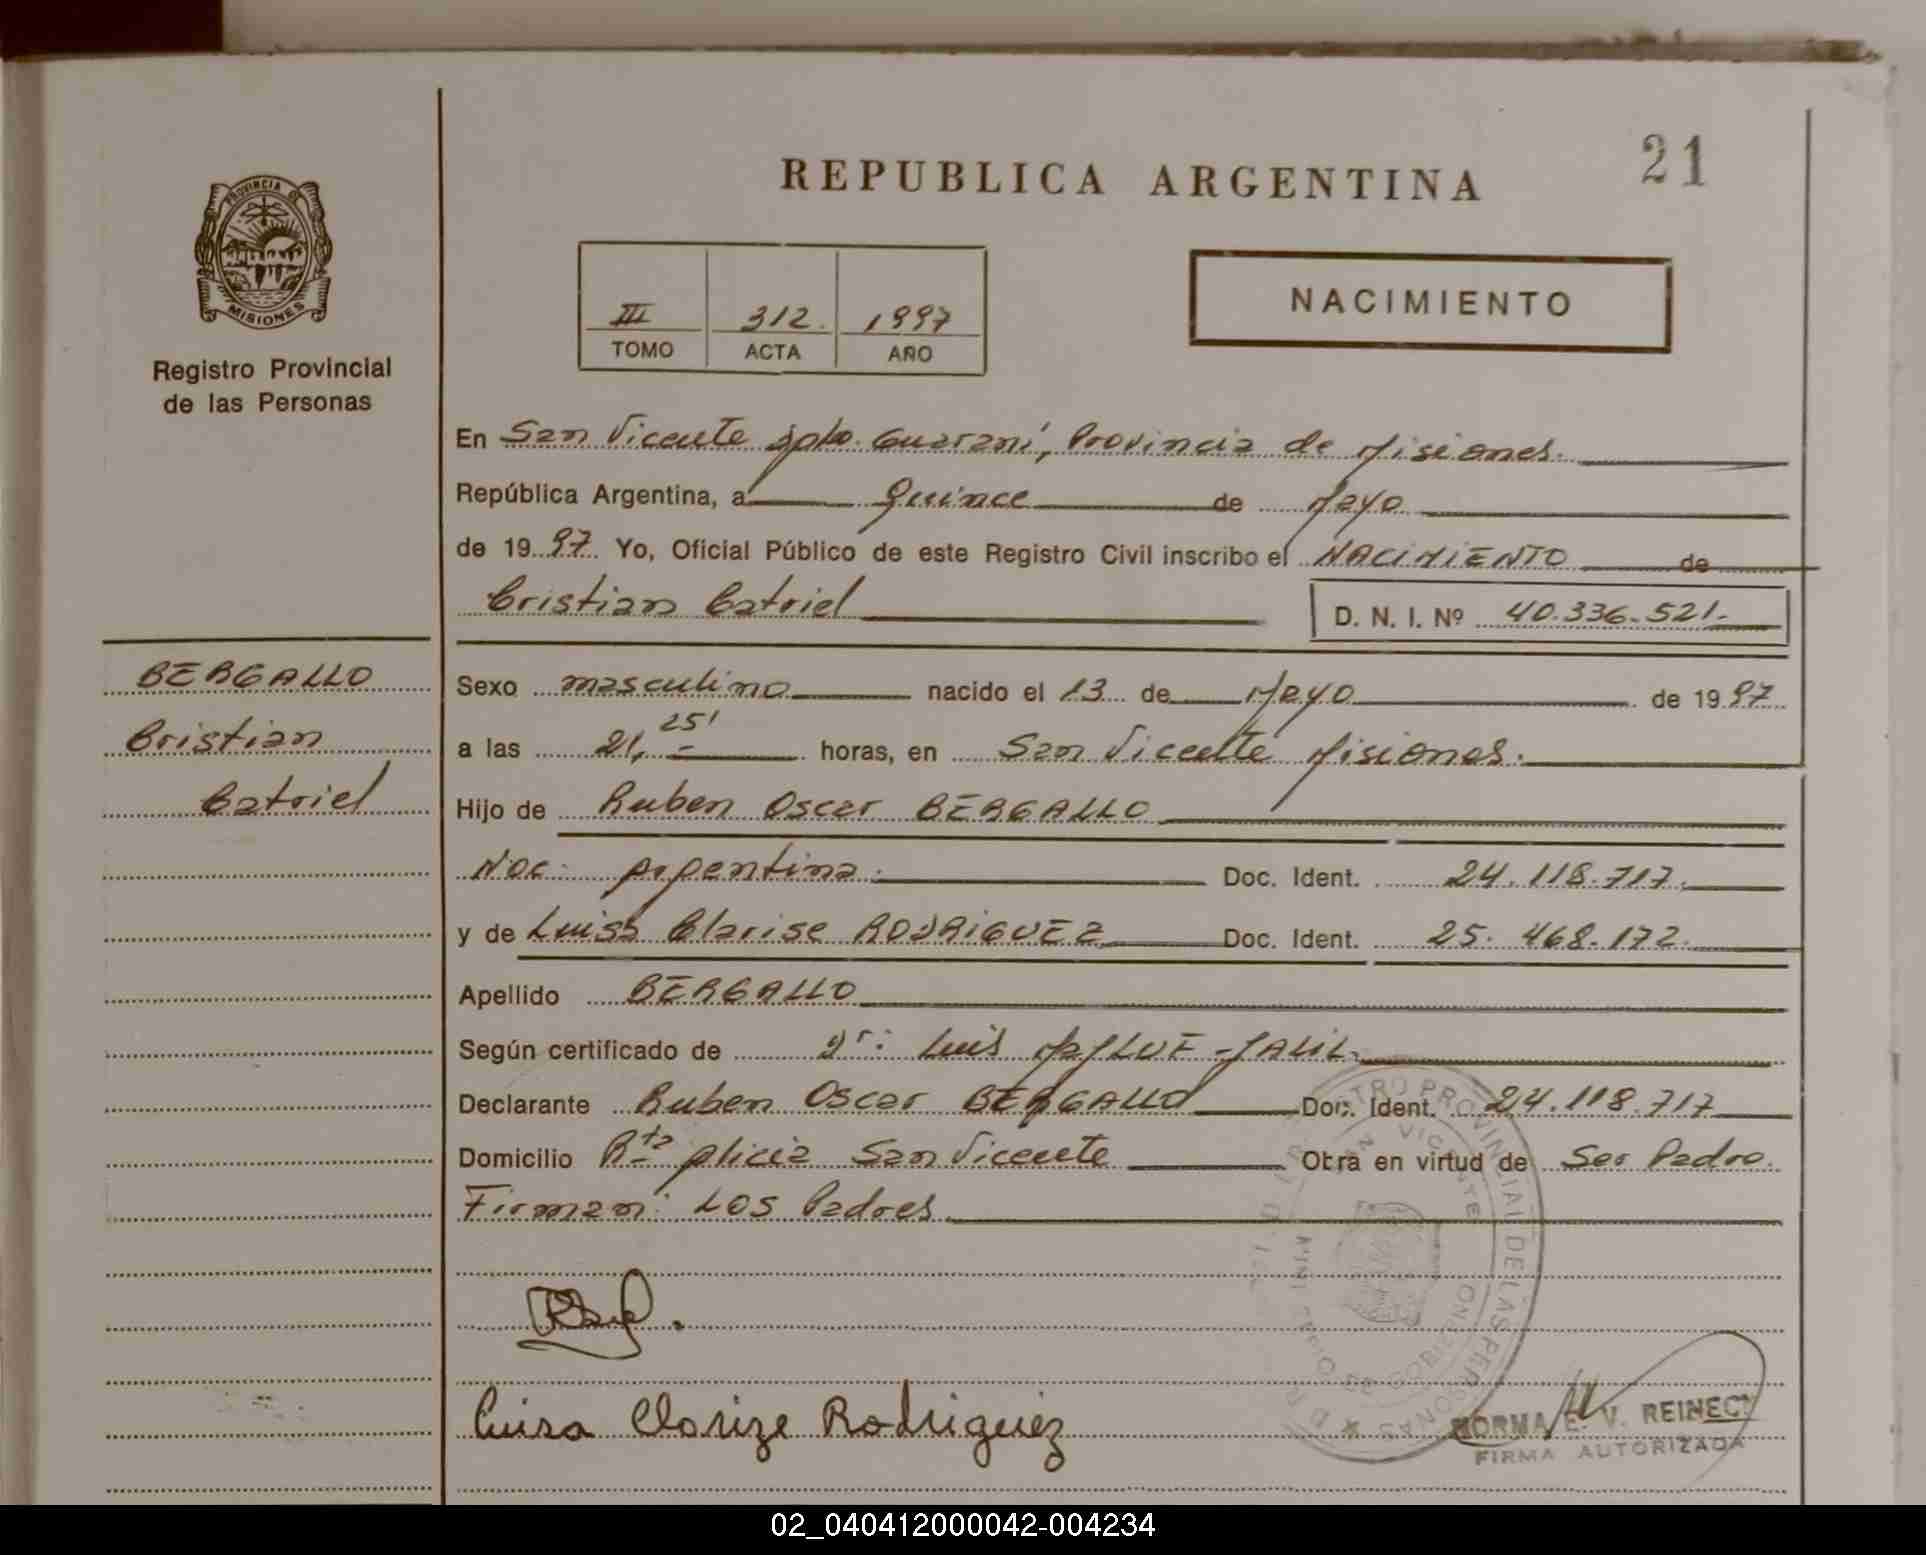 REPUBLICA ARGENTINA
21
PROVINCIA DE
MISIONES
Registro Provincial
de las Personas
III 312. 1997
TOMO ACTA AÑO
NACIMIENTO
En San Vicente Dpto. Guaraní, Provincia de Misiones.
República Argentina, a Quince de Mayo
de 1997 Yo, Oficial Público de este Registro Civil inscribo el NACIMIENTO de
Cristian Catriel
D. N. I. Nº 40.336.521.-
BERGALLO
Cristian
Catriel
Sexo masculino nacido el 13 de Mayo de 1997
a las 21, 25' horas, en San Vicente Misiones.
Hijo de Ruben Oscar BERGALLO
Nac: Argentina. Doc. Ident. 24.118.717.
y de Luisa Clarise RODRIGUEZ Doc. Ident. 25.468.172.
Apellido BERGALLO
Según certificado de Dr: Luis JALIL.
Declarante Ruben Oscar BERGALLO Doc. Ident. 24.118.717
Domicilio Rta Alicia San Vicente Obra en virtud de Ser Padre.
Firman: LOS Padres
Luisa Clarize Rodriguez
REGISTRO PROVINCIAL DE LAS PERSONAS
SAN VICENTE
MISIONES
NORMA E. V. REINECK
FIRMA AUTORIZADA
02_040412000042-004234